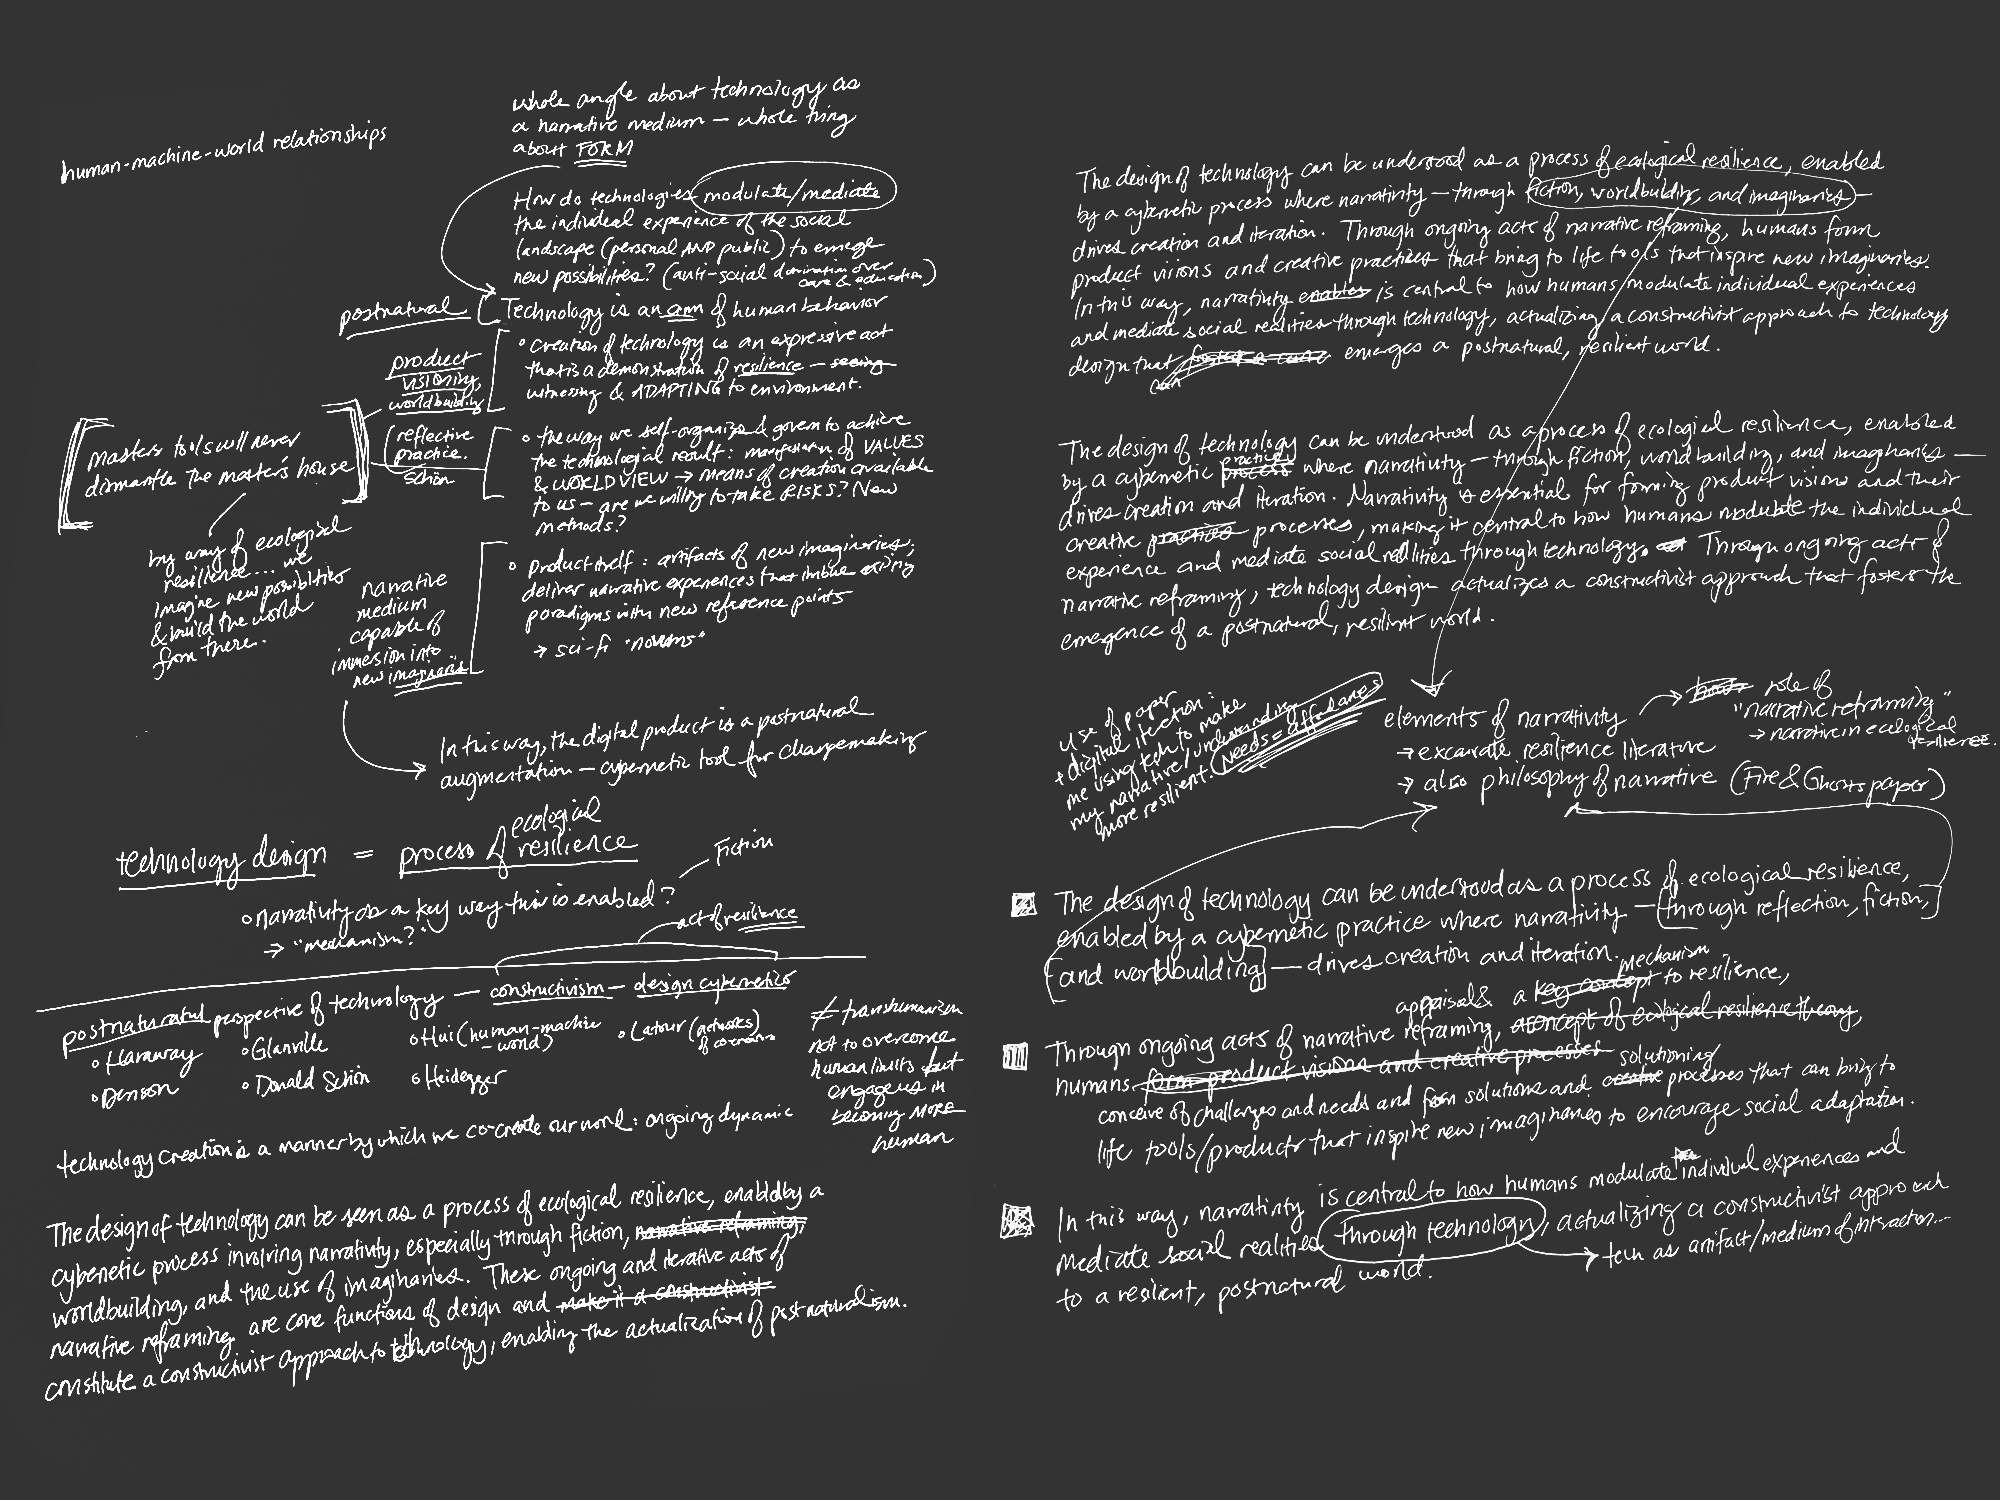 human-machine-world relationships
whole angle about technology as
a narrative medium — whole thing
about FORM
How do technologies modulate/mediate
the individual experience of the social
landscape (personal AND public) to emerge
new possibilities? (anti-social domination over
care & education)
postnatural
Technology is an arm of human behavior
product
visioning,
worldbuilding
• creation of technology is an expressive act
that is a demonstration of resilience — seeing
witnessing & ADAPTING to environment.
masters tools will never
dismantle the master's house
(reflective
practice.
Schön
• the way we self-organize & govern to achieve
the technological result: manifestation of VALUES
& WORLDVIEW → means of creation available
to us — are we willing to take RISKS? New
methods?
by way of ecological
resilience... we
imagine new possibilities
& build the world
from there.
narrative
medium
capable of
immersion into
new imaginaries
• product itself: artifacts of new imaginaries;
deliver narrative experiences that imbue existing
paradigms with new reference points
→ sci-fi "novums"
In this way, the digital product is a postnatural
augmentation — cybernetic tool for changemaking
technology design = process of ecological
resilience
Fiction
• narrativity as a key way this is enabled?
→ "mechanism?"
act of resilience
postnatural perspective of technology — constructivism — design cybernetics
• Haraway
• Glanville
• Hui (human-machine
-world)
• Latour (networks)
• Denson
• Donald Schön
• Heidegger
≠ transhumanism
not to overcome
human limits but
engage us in
becoming MORE
human
technology creation is a manner by which we co-create our world: ongoing dynamic
The design of technology can be seen as a process of ecological resilience, enabled by a
cybernetic process involving narrativity, especially through fiction, narrative reframing,
worldbuilding, and the use of imaginaries. These ongoing and iterative acts of
narrative reframing are core functions of design and make it a constructivist
constitute a constructivist approach to technology, enabling the actualization of postnaturalism.
The design of technology can be understood as a process of ecological resilience, enabled
by a cybernetic process where narrativity — through fiction, worldbuilding, and imaginaries —
drives creation and iteration. Through ongoing acts of narrative reframing, humans form
product visions and creative practices that bring to life tools that inspire new imaginaries.
In this way, narrativity enables is central to how humans modulate individual experiences
and mediate social realities through technology, actualizing a constructivist approach to technology
design that can emerges a postnatural, resilient world.
The design of technology can be understood as a process of ecological resilience, enabled
by a cybernetic process practice where narrativity — through fiction, worldbuilding, and imaginaries —
drives creation and iteration. Narrativity is essential for forming product visions and their
creative practices processes, making it central to how humans modulate the individual
experience and mediate social realities through technology. Through ongoing acts of
narrative reframing, technology design actualizes a constructivist approach that fosters the
emergence of a postnatural, resilient world.
use of paper
+ digital iteration:
me using tech to make
my narrative/understanding
more resilient. Needs = affordances
elements of narrativity
→ excavate resilience literature
→ also philosophy of narrative (Fire & Ghosts paper)
→ role of
"narrative reframing"
→ narrative in ecological
resilience.
The design of technology can be understood as a process of ecological resilience,
enabled by a cybernetic practice where narrativity — through reflection, fiction,
and worldbuilding — drives creation and iteration.
mechanism
appraisal & a key concept to resilience,
Through ongoing acts of narrative reframing, a concept of ecological resilience theory,
humans form product visions and creative processes solutioning
conceive of challenges and needs and form solutions and creative processes that can bring to
life tools/products that inspire new imaginaries to encourage social adaptation.
In this way, narrativity is central to how humans modulate individual experiences and
mediate social realities through technology, actualizing a constructivist approach
to a resilient, postnatural world.
→ tech as artifact/medium of interaction...